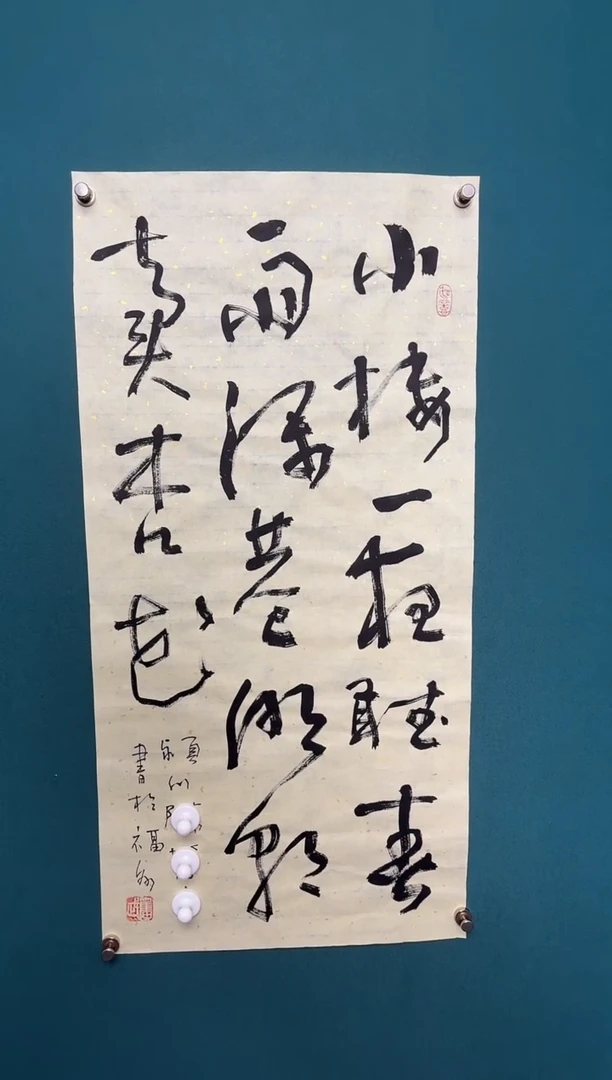 小楼一夜听春
雨深巷明朝
卖杏花
書於福州